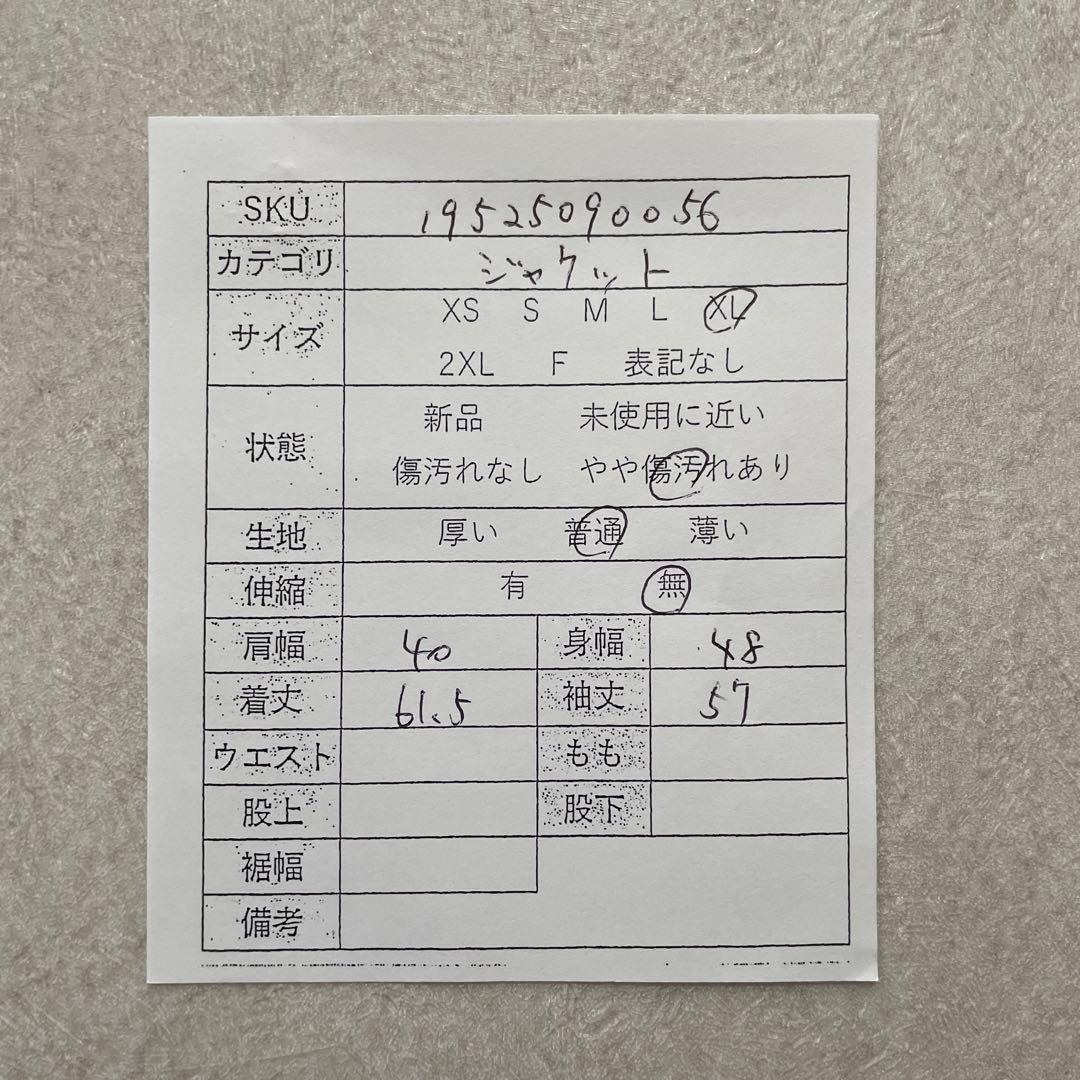 SKU 19525090056
カテゴリ ジャケット
サイズ XS S M L XL
2XL F 表記なし
状態 新品 未使用に近い
傷汚れなし やや傷汚れあり
生地 厚い 普通 薄い
伸縮 有 無
肩幅 40 身幅 48
着丈 61.5 袖丈 57
ウエスト もも
股上 股下
裾幅
備考